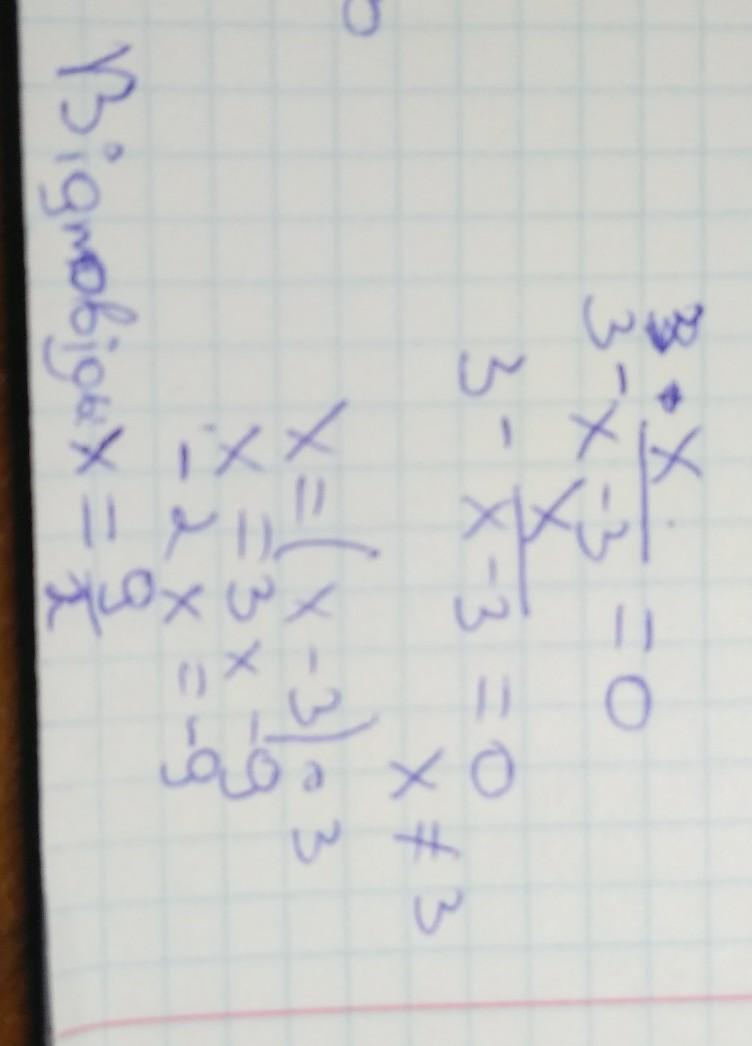 3 - x/x-3 = 0
3 - x/x-3 = 0
x ≠ 3
x = (x - 3) • 3
x = 3x - 9
-2x = -9
Відповідь x = 9/2